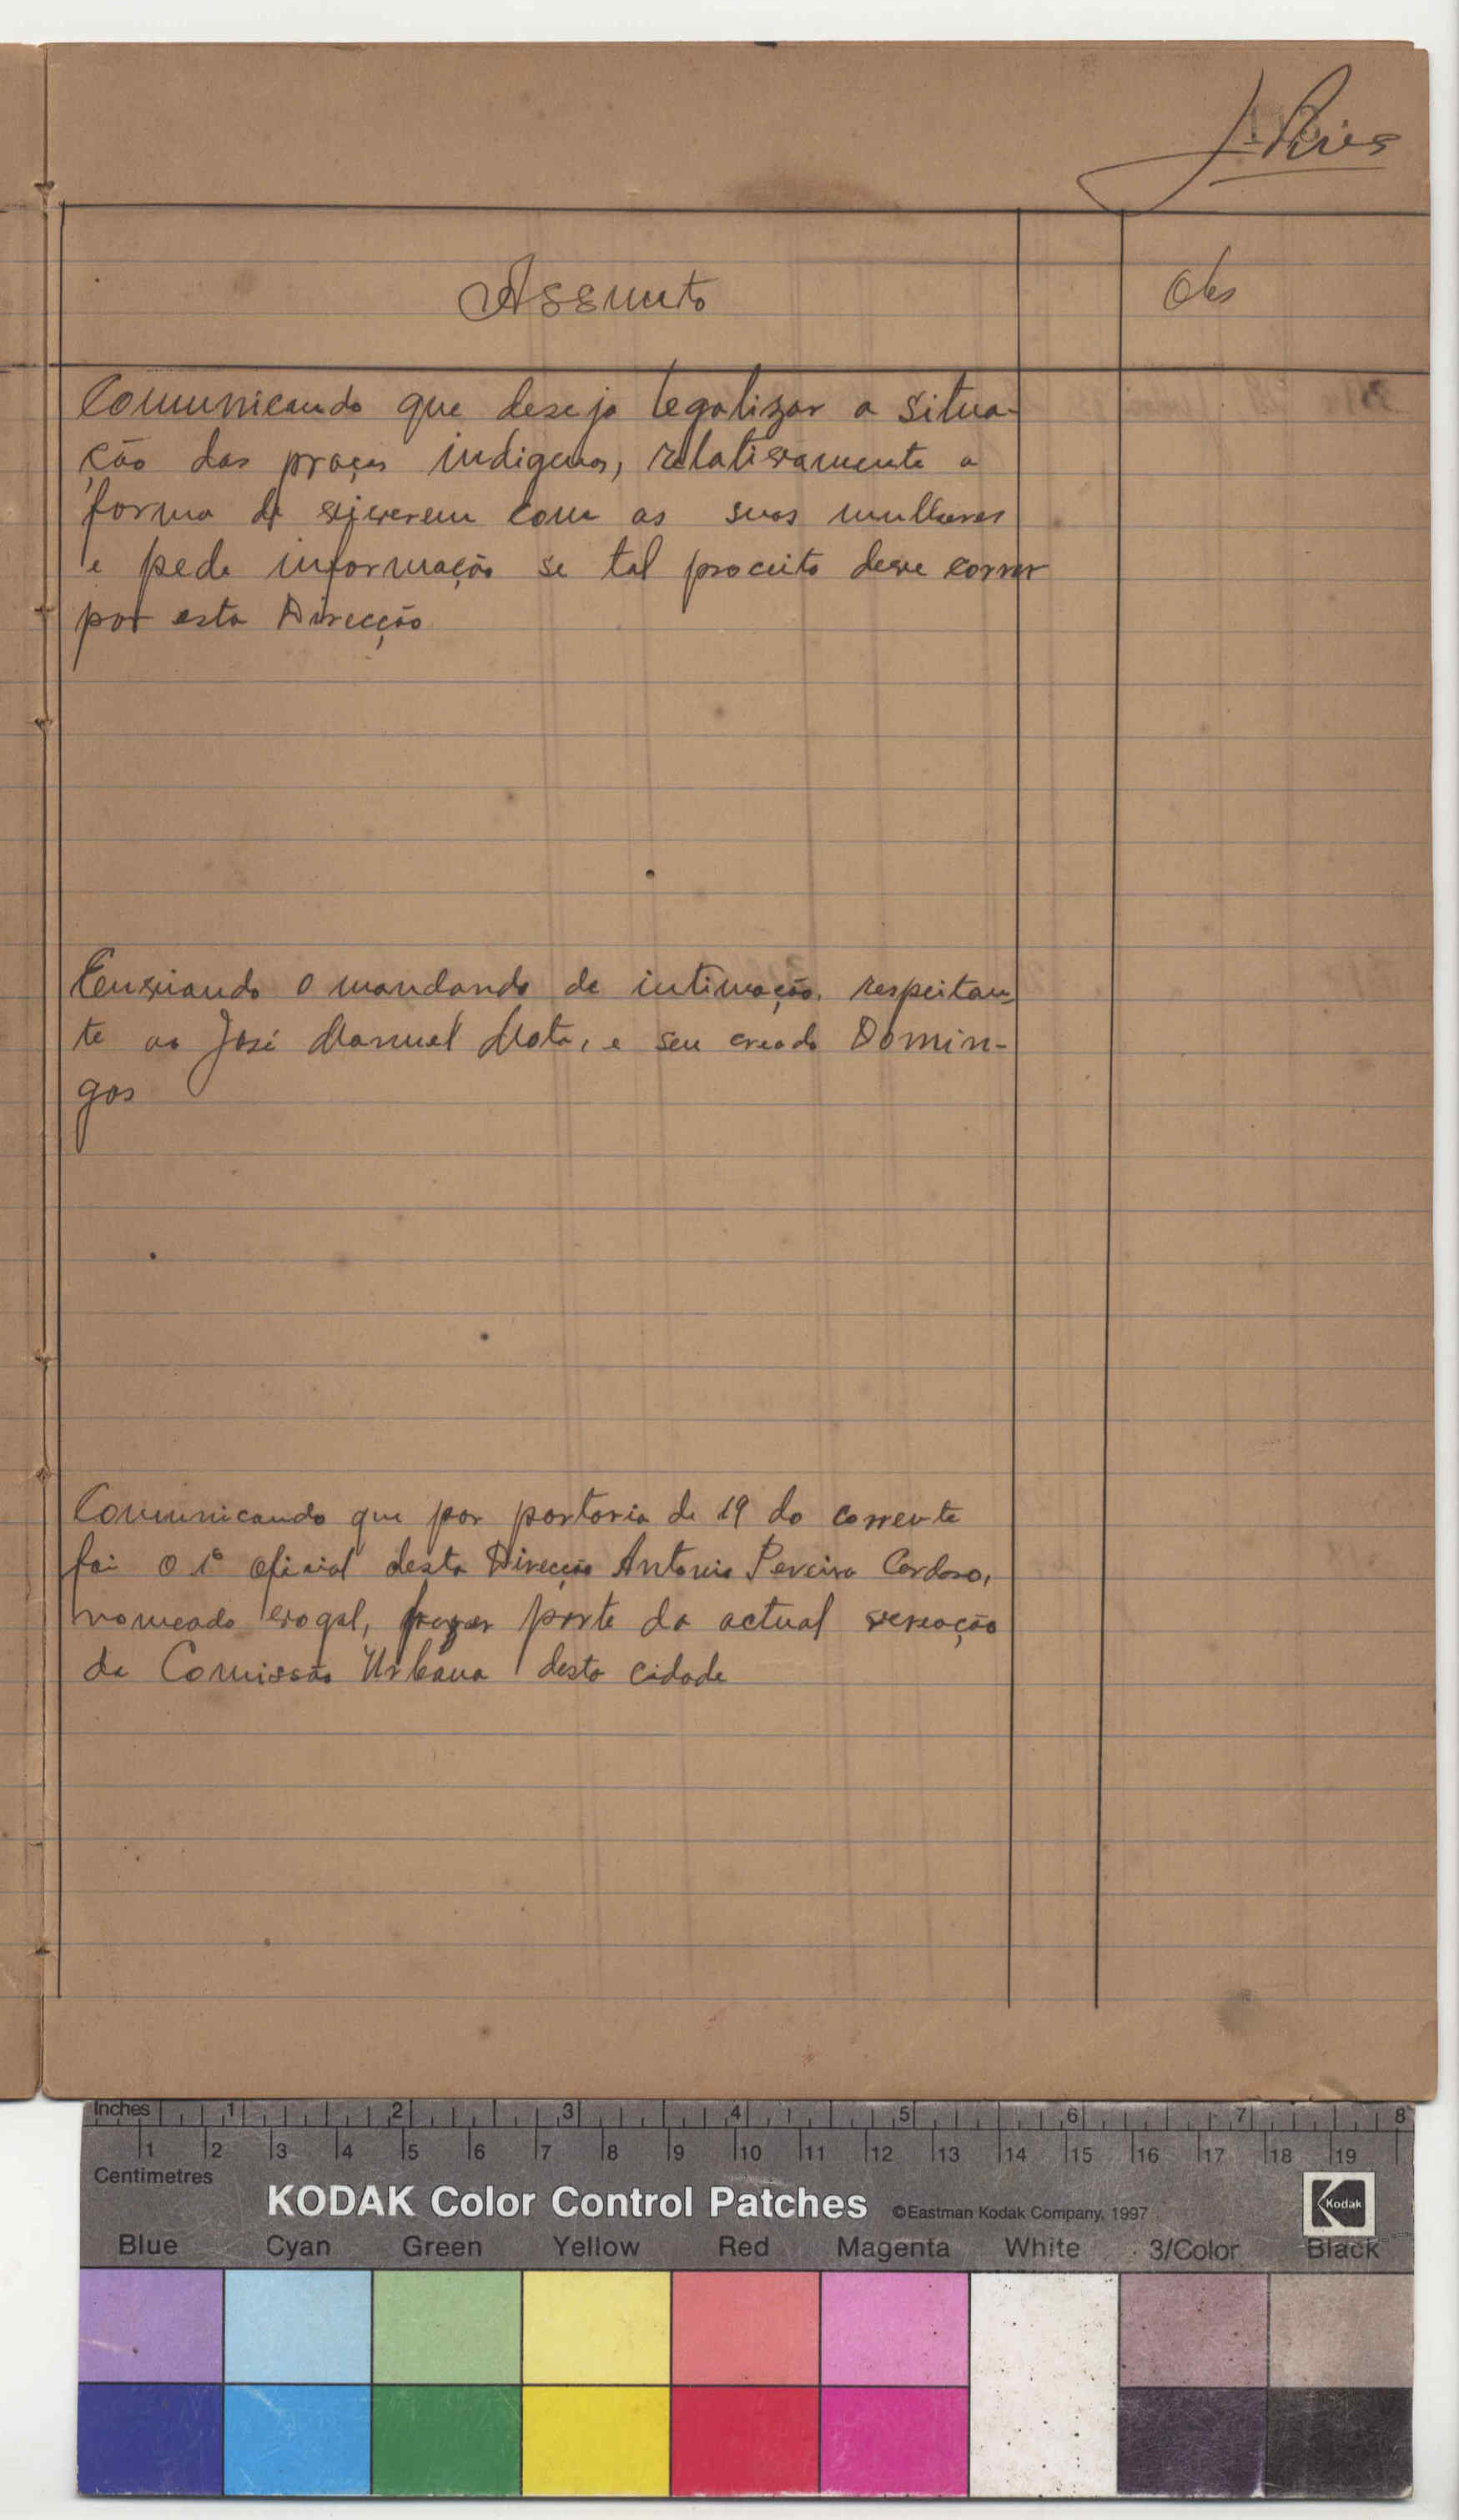 J. Pires
Assunto
Obs
Comunicando que deseja legalizar a situa-
ção das praças indigenas, relativamente a
forma de viverem com as suas mulheres
e pede informação se tal preceito deve correr
por esta Direcção
Enviando o mandando de intimação, respeitan-
te ao José Manuel Mota, e seu creado Domin-
gos
Comunicando que por portaria de 19 do corrente
foi o 1º oficial desta Direcção Antonio Pereira Cardoso,
nomeado vogal, fazer parte da actual vereação
da Comissão Urbana desta cidade
Inches 1 2 3 4 5 6 7 8
1 2 3 4 5 6 7 8 9 10 11 12 13 14 15 16 17 18 19
Centimetres
KODAK Color Control Patches ©Eastman Kodak Company, 1997 Kodak
Blue Cyan Green Yellow Red Magenta White 3/Color Black